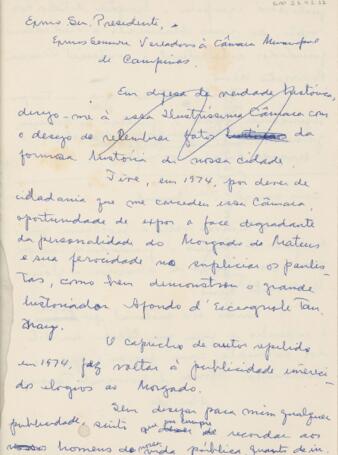 Exmo Snr. Presidente,
Exmos Senhores Vereadores à Câmara Municipal
de Campinas.
Em defesa da verdade histórica,
dirijo-me à essa Ilustríssima Câmara com
o desejo de relembrar fatos da
formosa história de nossa cidade
Tive, em 1974, por dever de
cidadania que me concedeu essa Câmara,
oportunidade de expor a face degradante
da personalidade do Morgado de Mateus
e sua ferocidade no supliciar os paulis-
tas, como bem demonstrou o grande
historiador Afonso d'Escragnole Tau-
nay.
O capricho de autor repelido
em 1974, faz voltar à publicidade imereci-
dos elogios ao Morgado.
Sem desejar para mim qualquer
publicidade, sinto que me cumpre recordar aos
homens de nossa vida pública quanto de in-